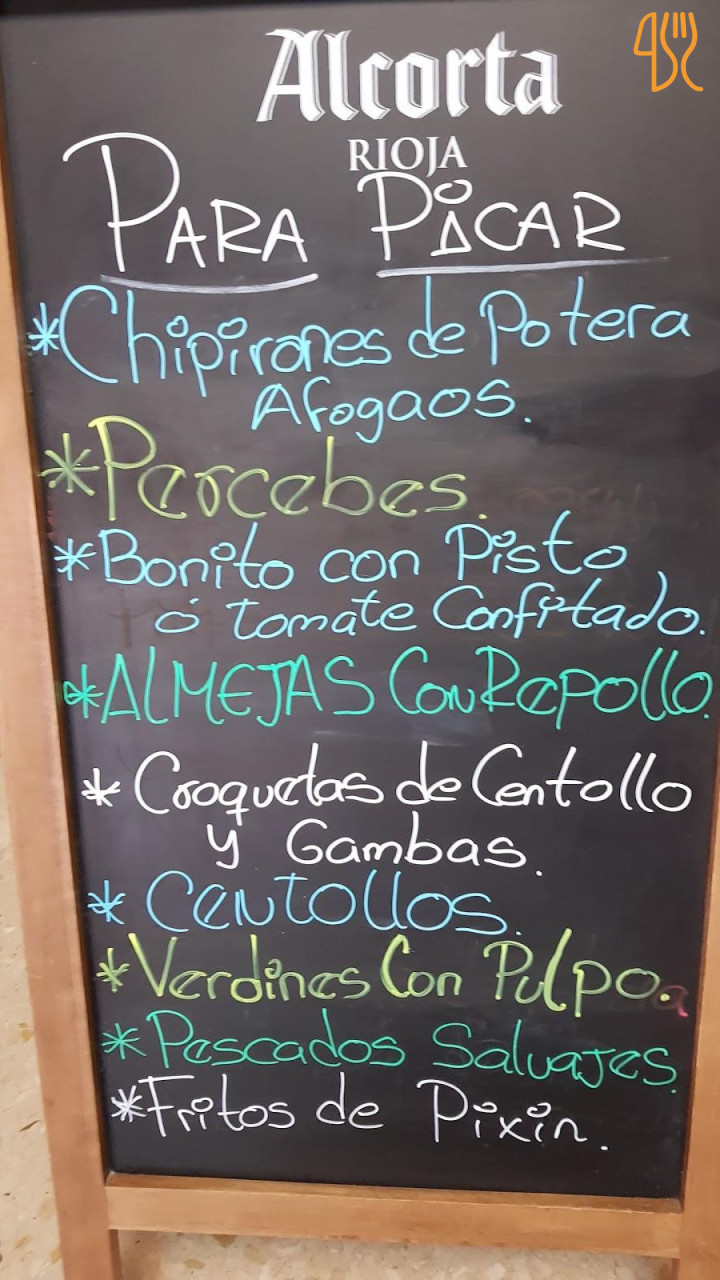 Alcorta
RIOJA
PARA PiCAR
*Chipirones de Potera
Afogaos.
*Percebes.
*Bonito con Pisto
ó tomate Confitado.
*ALMEJAS Con Repollo.
* Croquetas de Centollo
y Gambas.
* Centollos.
*Verdines Con Pulpo.
*Pescados Salvajes.
*Fritos de Pixin.